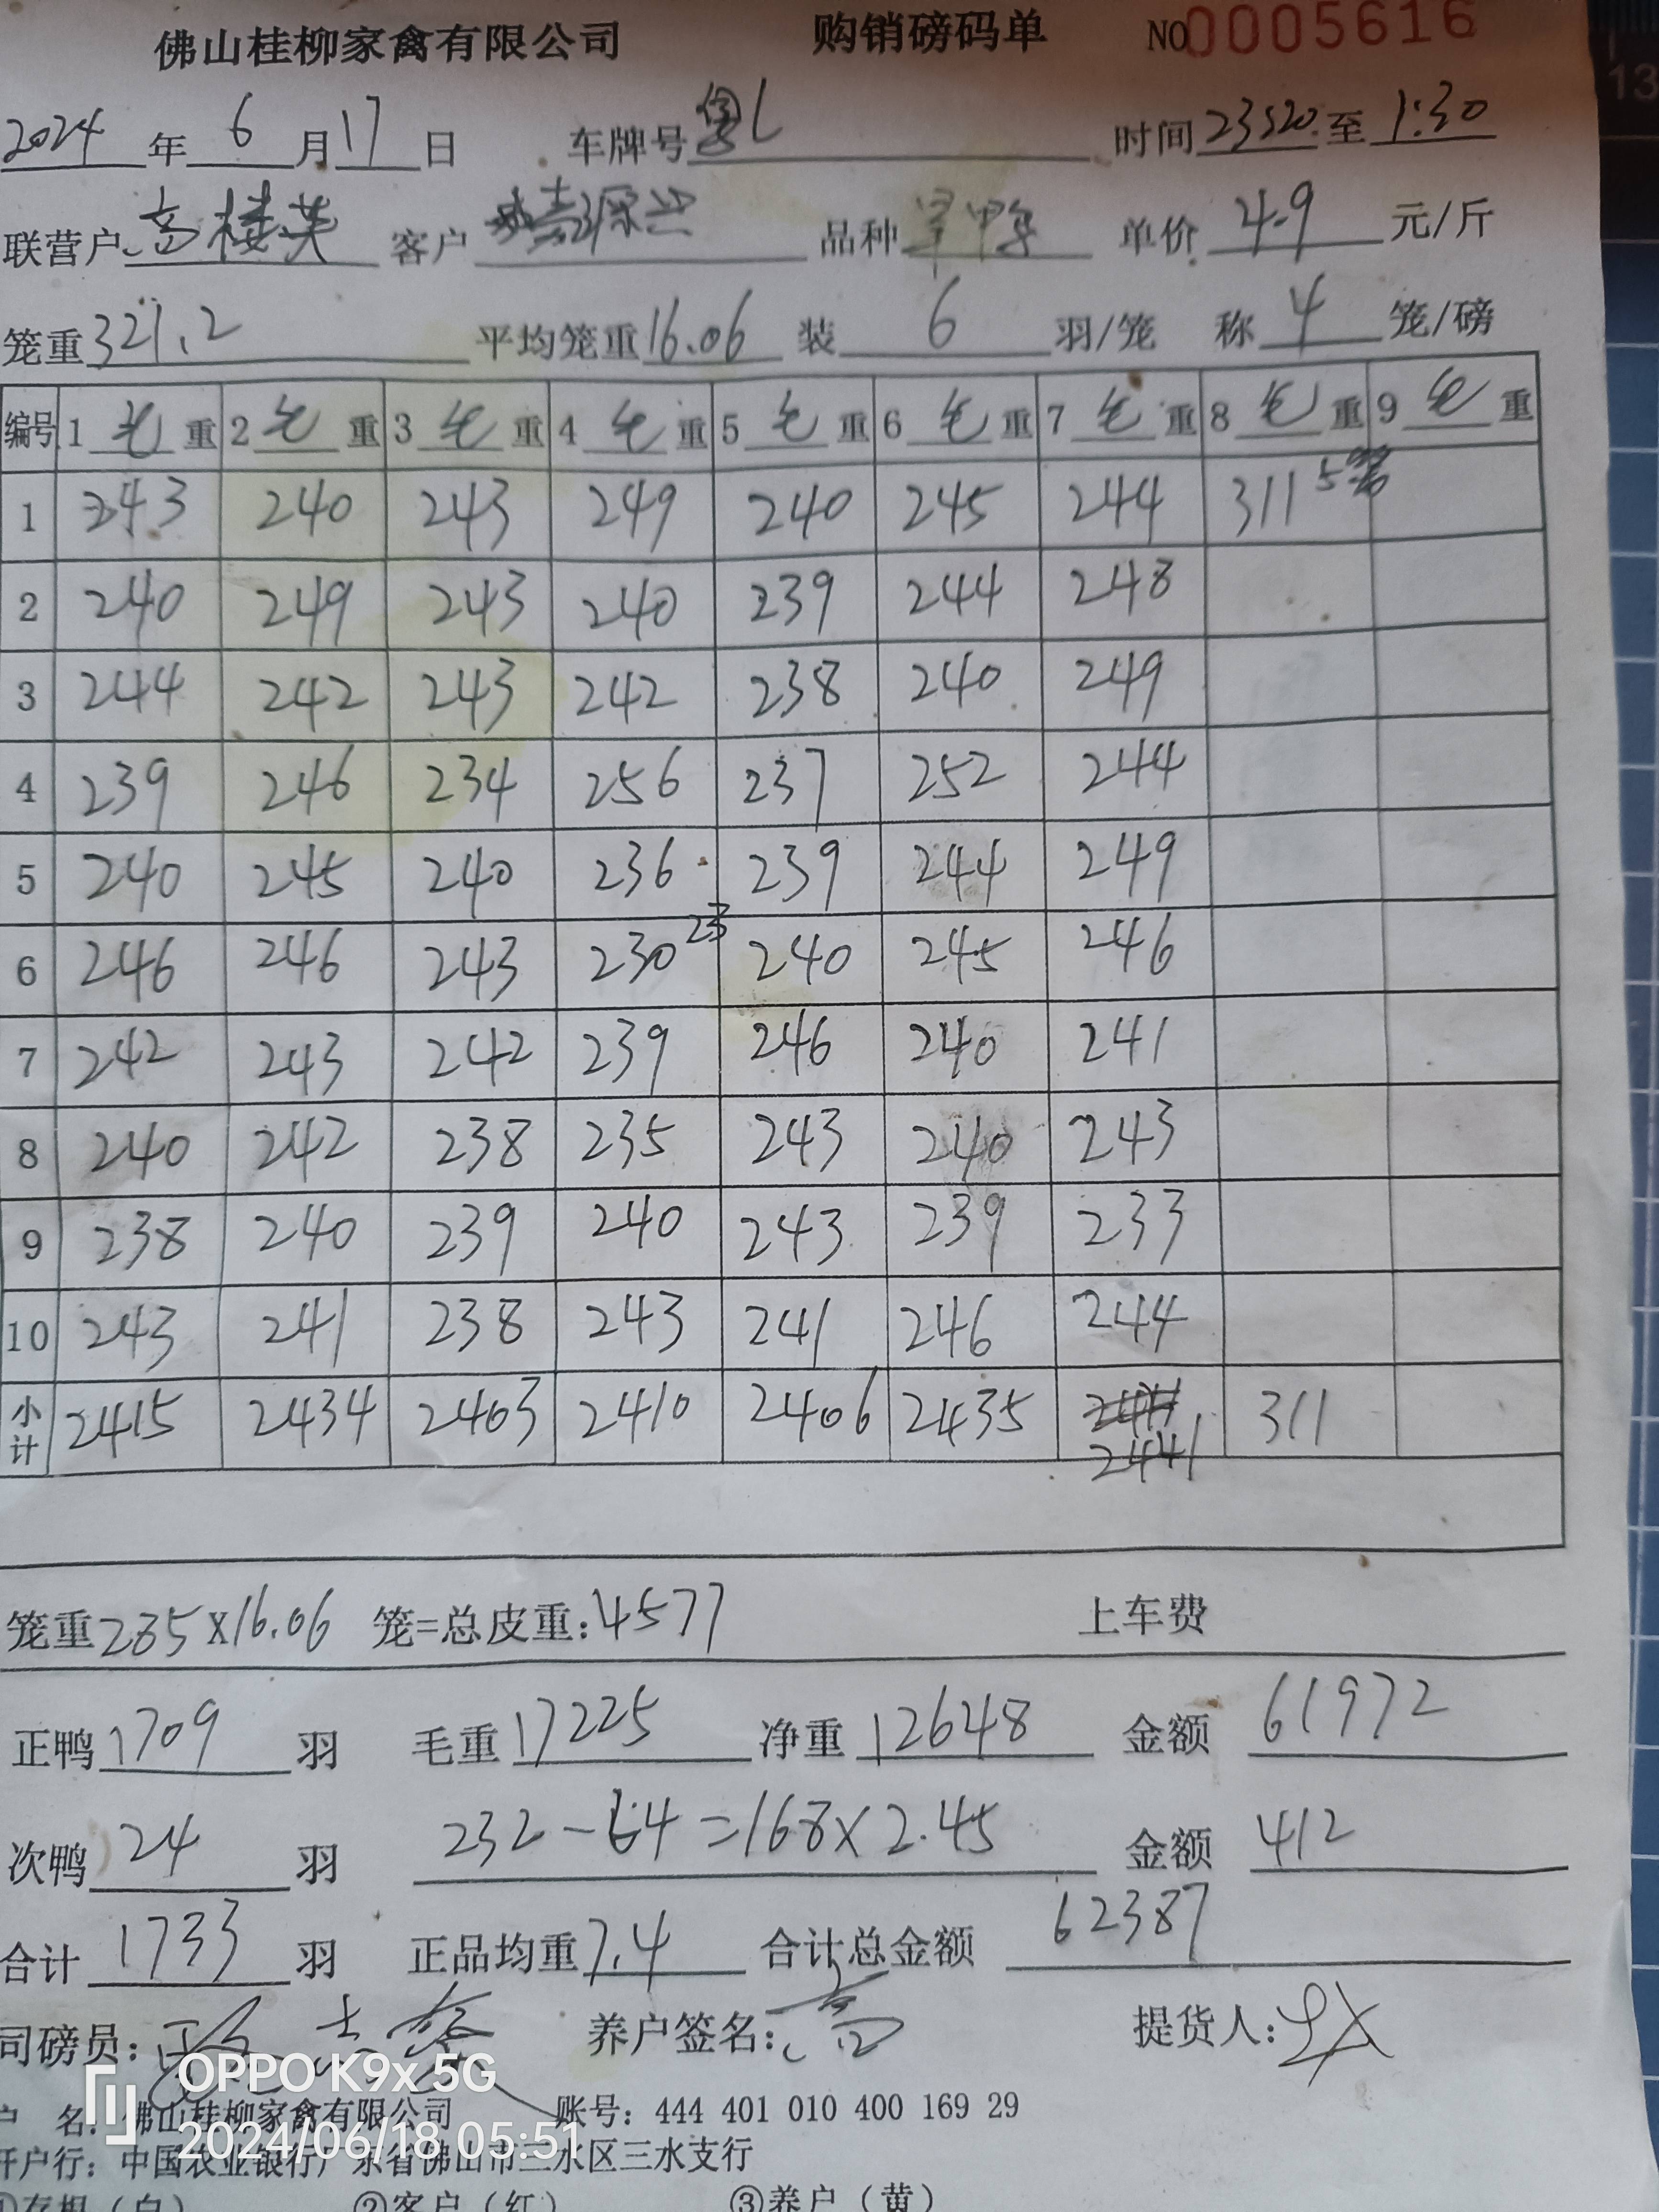 佛山桂柳家禽有限公司 购销磅码单 NO 0005616
2024 年 6 月 17 日 车牌号 粤L 时间 23:20 至 1:30
联营户 高楼英 客户 品种 单价 4.9 元/斤
笼重 321.2 平均笼重 16.06 装 6 羽/笼 称 4 笼/磅
编号 1 毛 重 2 毛 重 3 毛 重 4 毛 重 5 毛 重 6 毛 重 7 毛 重 8 毛 重 9 毛 重
1 243 240 243 249 240 245 244 311 5笼
2 240 249 243 240 239 244 248
3 244 242 243 242 238 240 249
4 239 246 234 256 237 252 244
5 240 245 240 236 239 244 249
6 246 246 243 230 23 240 245 246
7 242 243 242 239 246 240 241
8 240 242 238 235 243 240 243
9 238 240 239 240 243 239 233
10 243 241 238 243 241 246 244
小计 2415 2434 2403 2410 2406 2435 2441 311
笼重 285X16.06 笼=总皮重: 4577 上车费
正鸭 1709 羽 毛重 17225 净重 12648 金额 61972
次鸭 24 羽 232-64=168X2.45 金额 412
合计 1733 羽 正品均重 7.4 合计总金额 62387
司磅员: 养户签名: 高 提货人:
户 名: 佛山桂柳家禽有限公司 账号: 444 401 010 400 169 29
开户行: 中国农业银行广东省佛山市三水区三水支行
①存根(白) ②客户(红) ③养户(黄)
OPPO K9x 5G
2024/06/18 05:51
13